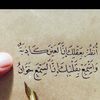 أنظر بعقلك إن العين كاذبة
واسمع بقلبك إن السمع خوان